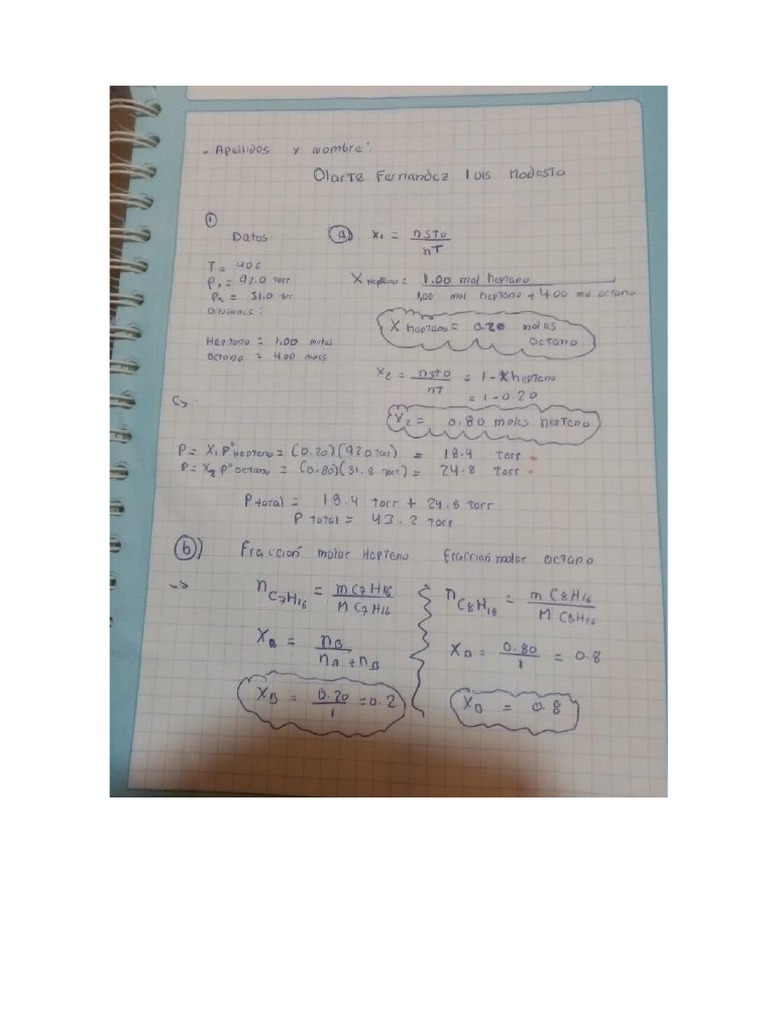 - Apellidos y nombre:
Olarte Fernandez luis Modesto
①
Datos
T = 40c
P₁ = 92.0 torr
P₂ = 31.0 torr
Heptano = 1.00 moles
Octano = 4.00 mols
ⓐ X₁ = nsto / nT
X Heptano = 1.00 mol heptano / 1.00 mol heptano + 4.00 mol octano
X heptano = 0.20 moles
octano
X₂ = nsto / nT = 1 - X heptano
= 1 - 0.20
X₂ = 0.80 moles hepteno
P = X₁ P° Hepteno = (0.20)(92.0 torr) = 18.4 Torr
P = X₂ P° octano = (0.80)(31.8 torr) = 24.8 Torr
P total = 18.4 torr + 24.8 torr
P total = 43.2 torr
ⓑ) Fracción molar Hepteno
-> n C₇H₁₆ = m C₇H₁₆ / M C₇H₁₆
X_B = n_B / n_A + n_B
X_B = 0.20 / 1 = 0.2
fracción molar octano
n C₈H₁₈ = m C₈H₁₆ / M C₈H₁₆
X_B = 0.80 / 1 = 0.8
X_B = 0.8